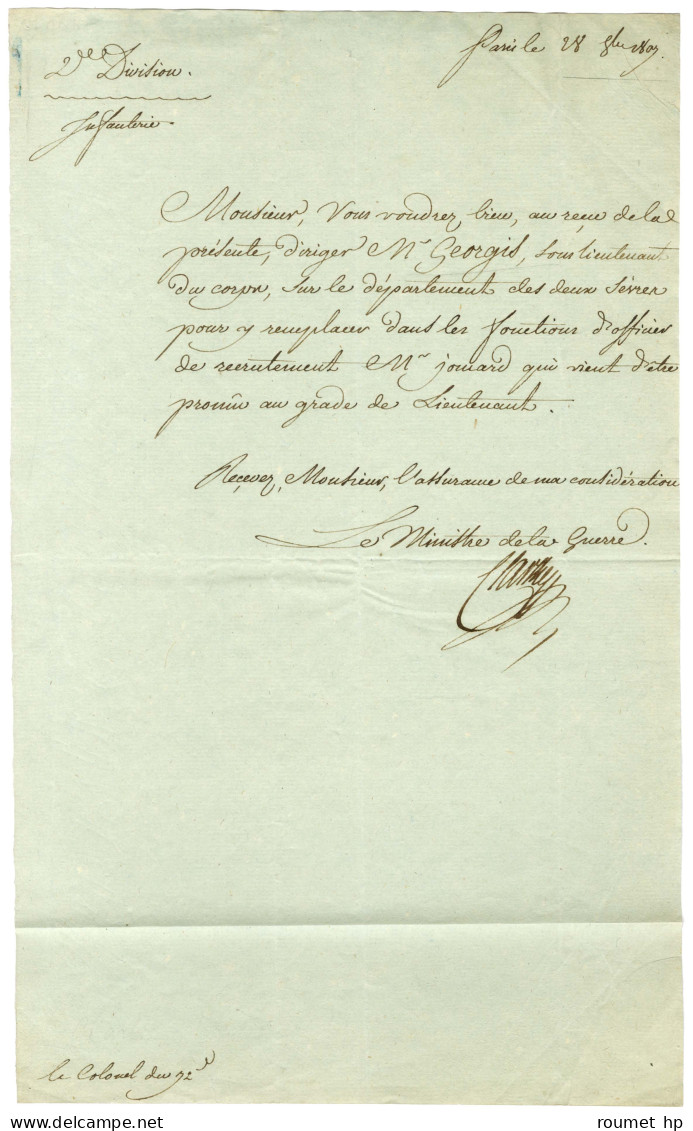 Paris le 28 8bre 1807.
2de Division.
Infanterie.
Monsieur, Vous voudrez bien, au reçu de la
présente, diriger Mr Georgis, sous lieutenant
du corps, sur le département des deux Sèvres
pour y remplacer dans les fonctions d'officier
de recrutement Mr jomard qui vient d'être
promû au grade de Lieutenant.
Recevez, Monsieur, l'assurance de ma considération
Le Ministre de la Guerre.
Clarke
le Colonel du 72e
roumet hp